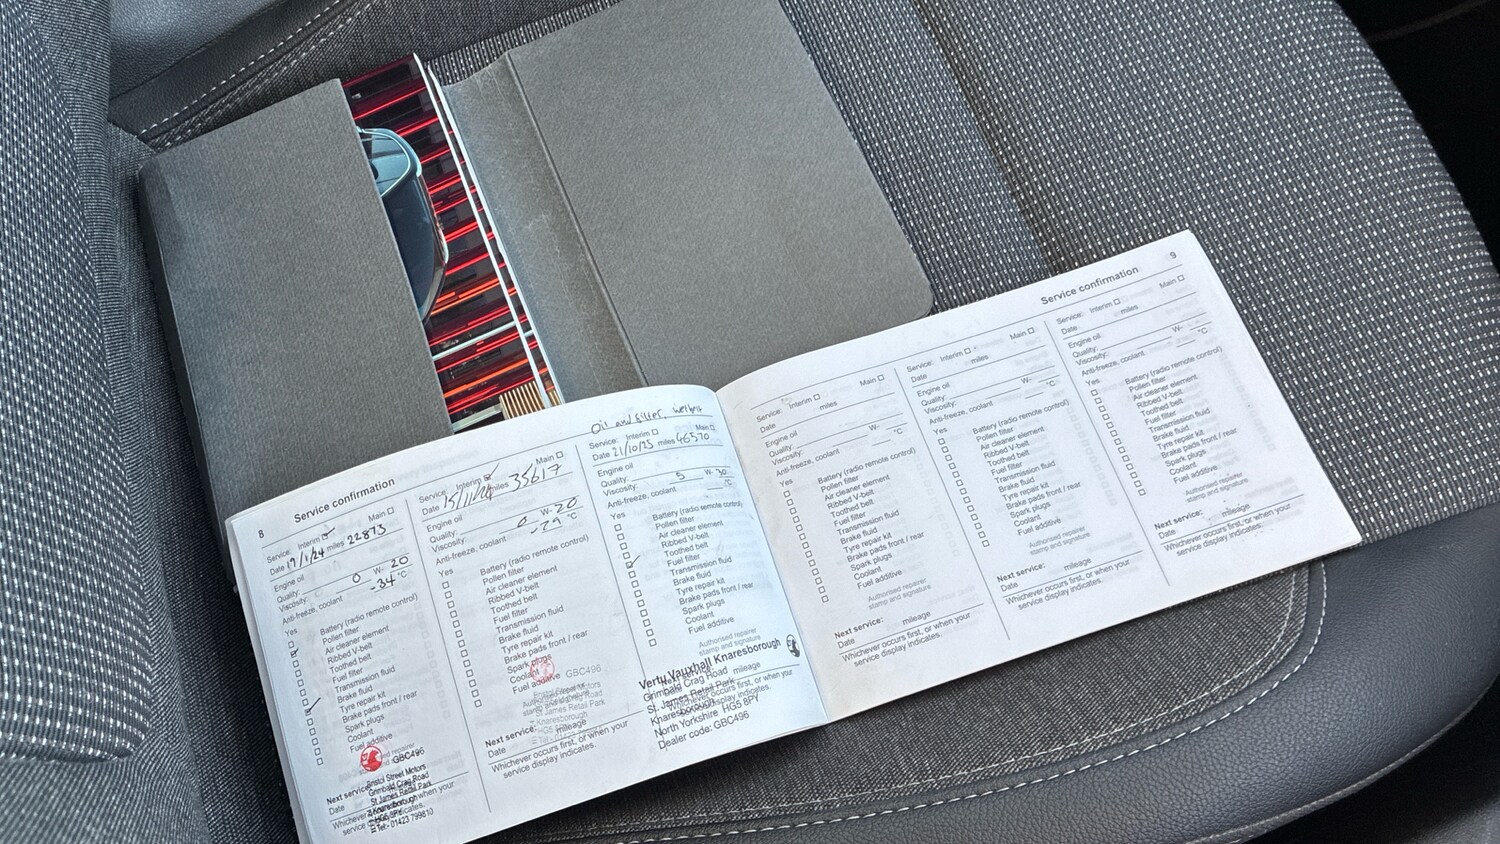 8
Service confirmation
Service: Interim Main
Date 17/1/24 miles 22873
Engine oil
Quality: 0 W- 20
Viscosity:
Anti-freeze, coolant -34 °C
Yes
Battery (radio remote control)
Pollen filter
Air cleaner element
Ribbed V-belt
Toothed belt
Fuel filter
Transmission fluid
Brake fluid
Tyre repair kit
Brake pads front / rear
Spark plugs
Coolant
Fuel additive
GBC496
Bristol Street Motors
Grimbald Crag Road
St James Retail Park
Knaresborough
HG5 8PY
Tel:- 01423 799810
Next service:
Date
Service: Interim Main
Date 15/11/24 miles 35617
Engine oil
Quality: 0 W- 20
Viscosity:
Anti-freeze, coolant -29 °C
Yes
Battery (radio remote control)
Pollen filter
Air cleaner element
Ribbed V-belt
Toothed belt
Fuel filter
Transmission fluid
Brake fluid
Tyre repair kit
Brake pads front / rear
Spark plugs
Coolant
Fuel additive
GBC496
Next service:
Date mileage
Whichever occurs first, or when your
service display indicates.
Oil and filter, wetbelt
Service: Interim Main
Date 21/10/25 miles 46570
Engine oil
Quality: 5 W- 30
Viscosity:
Anti-freeze, coolant °C
Yes
Battery (radio remote control)
Pollen filter
Air cleaner element
Ribbed V-belt
Toothed belt
Fuel filter
Transmission fluid
Brake fluid
Tyre repair kit
Brake pads front / rear
Spark plugs
Coolant
Fuel additive
Authorised repairer
stamp and signature
Vertu Vauxhall Knaresborough
Grimbald Crag Road
St. James Retail Park
Knaresborough
North Yorkshire HG5 8PY
Dealer code: GBC496
Service confirmation
9
Service: Interim Main
Date miles
Engine oil
Quality: W-
Viscosity: °C
Anti-freeze, coolant
Yes
Battery (radio remote control)
Pollen filter
Air cleaner element
Ribbed V-belt
Toothed belt
Fuel filter
Transmission fluid
Brake fluid
Tyre repair kit
Brake pads front / rear
Spark plugs
Coolant
Fuel additive
Authorised repairer
stamp and signature
Next service:
Date mileage
Whichever occurs first, or when your
service display indicates.
Service: Interim Main
Date miles
Engine oil
Quality: W-
Viscosity: °C
Anti-freeze, coolant
Yes
Battery (radio remote control)
Pollen filter
Air cleaner element
Ribbed V-belt
Toothed belt
Fuel filter
Transmission fluid
Brake fluid
Tyre repair kit
Brake pads front / rear
Spark plugs
Coolant
Fuel additive
Authorised repairer
stamp and signature
Next service:
Date mileage
Whichever occurs first, or when your
service display indicates.
Service: Interim Main
Date miles
Engine oil
Quality: W-
Viscosity: °C
Anti-freeze, coolant
Yes
Battery (radio remote control)
Pollen filter
Air cleaner element
Ribbed V-belt
Toothed belt
Fuel filter
Transmission fluid
Brake fluid
Tyre repair kit
Brake pads front / rear
Spark plugs
Coolant
Fuel additive
Authorised repairer
stamp and signature
Next service:
Date mileage
Whichever occurs first, or when your
service display indicates.